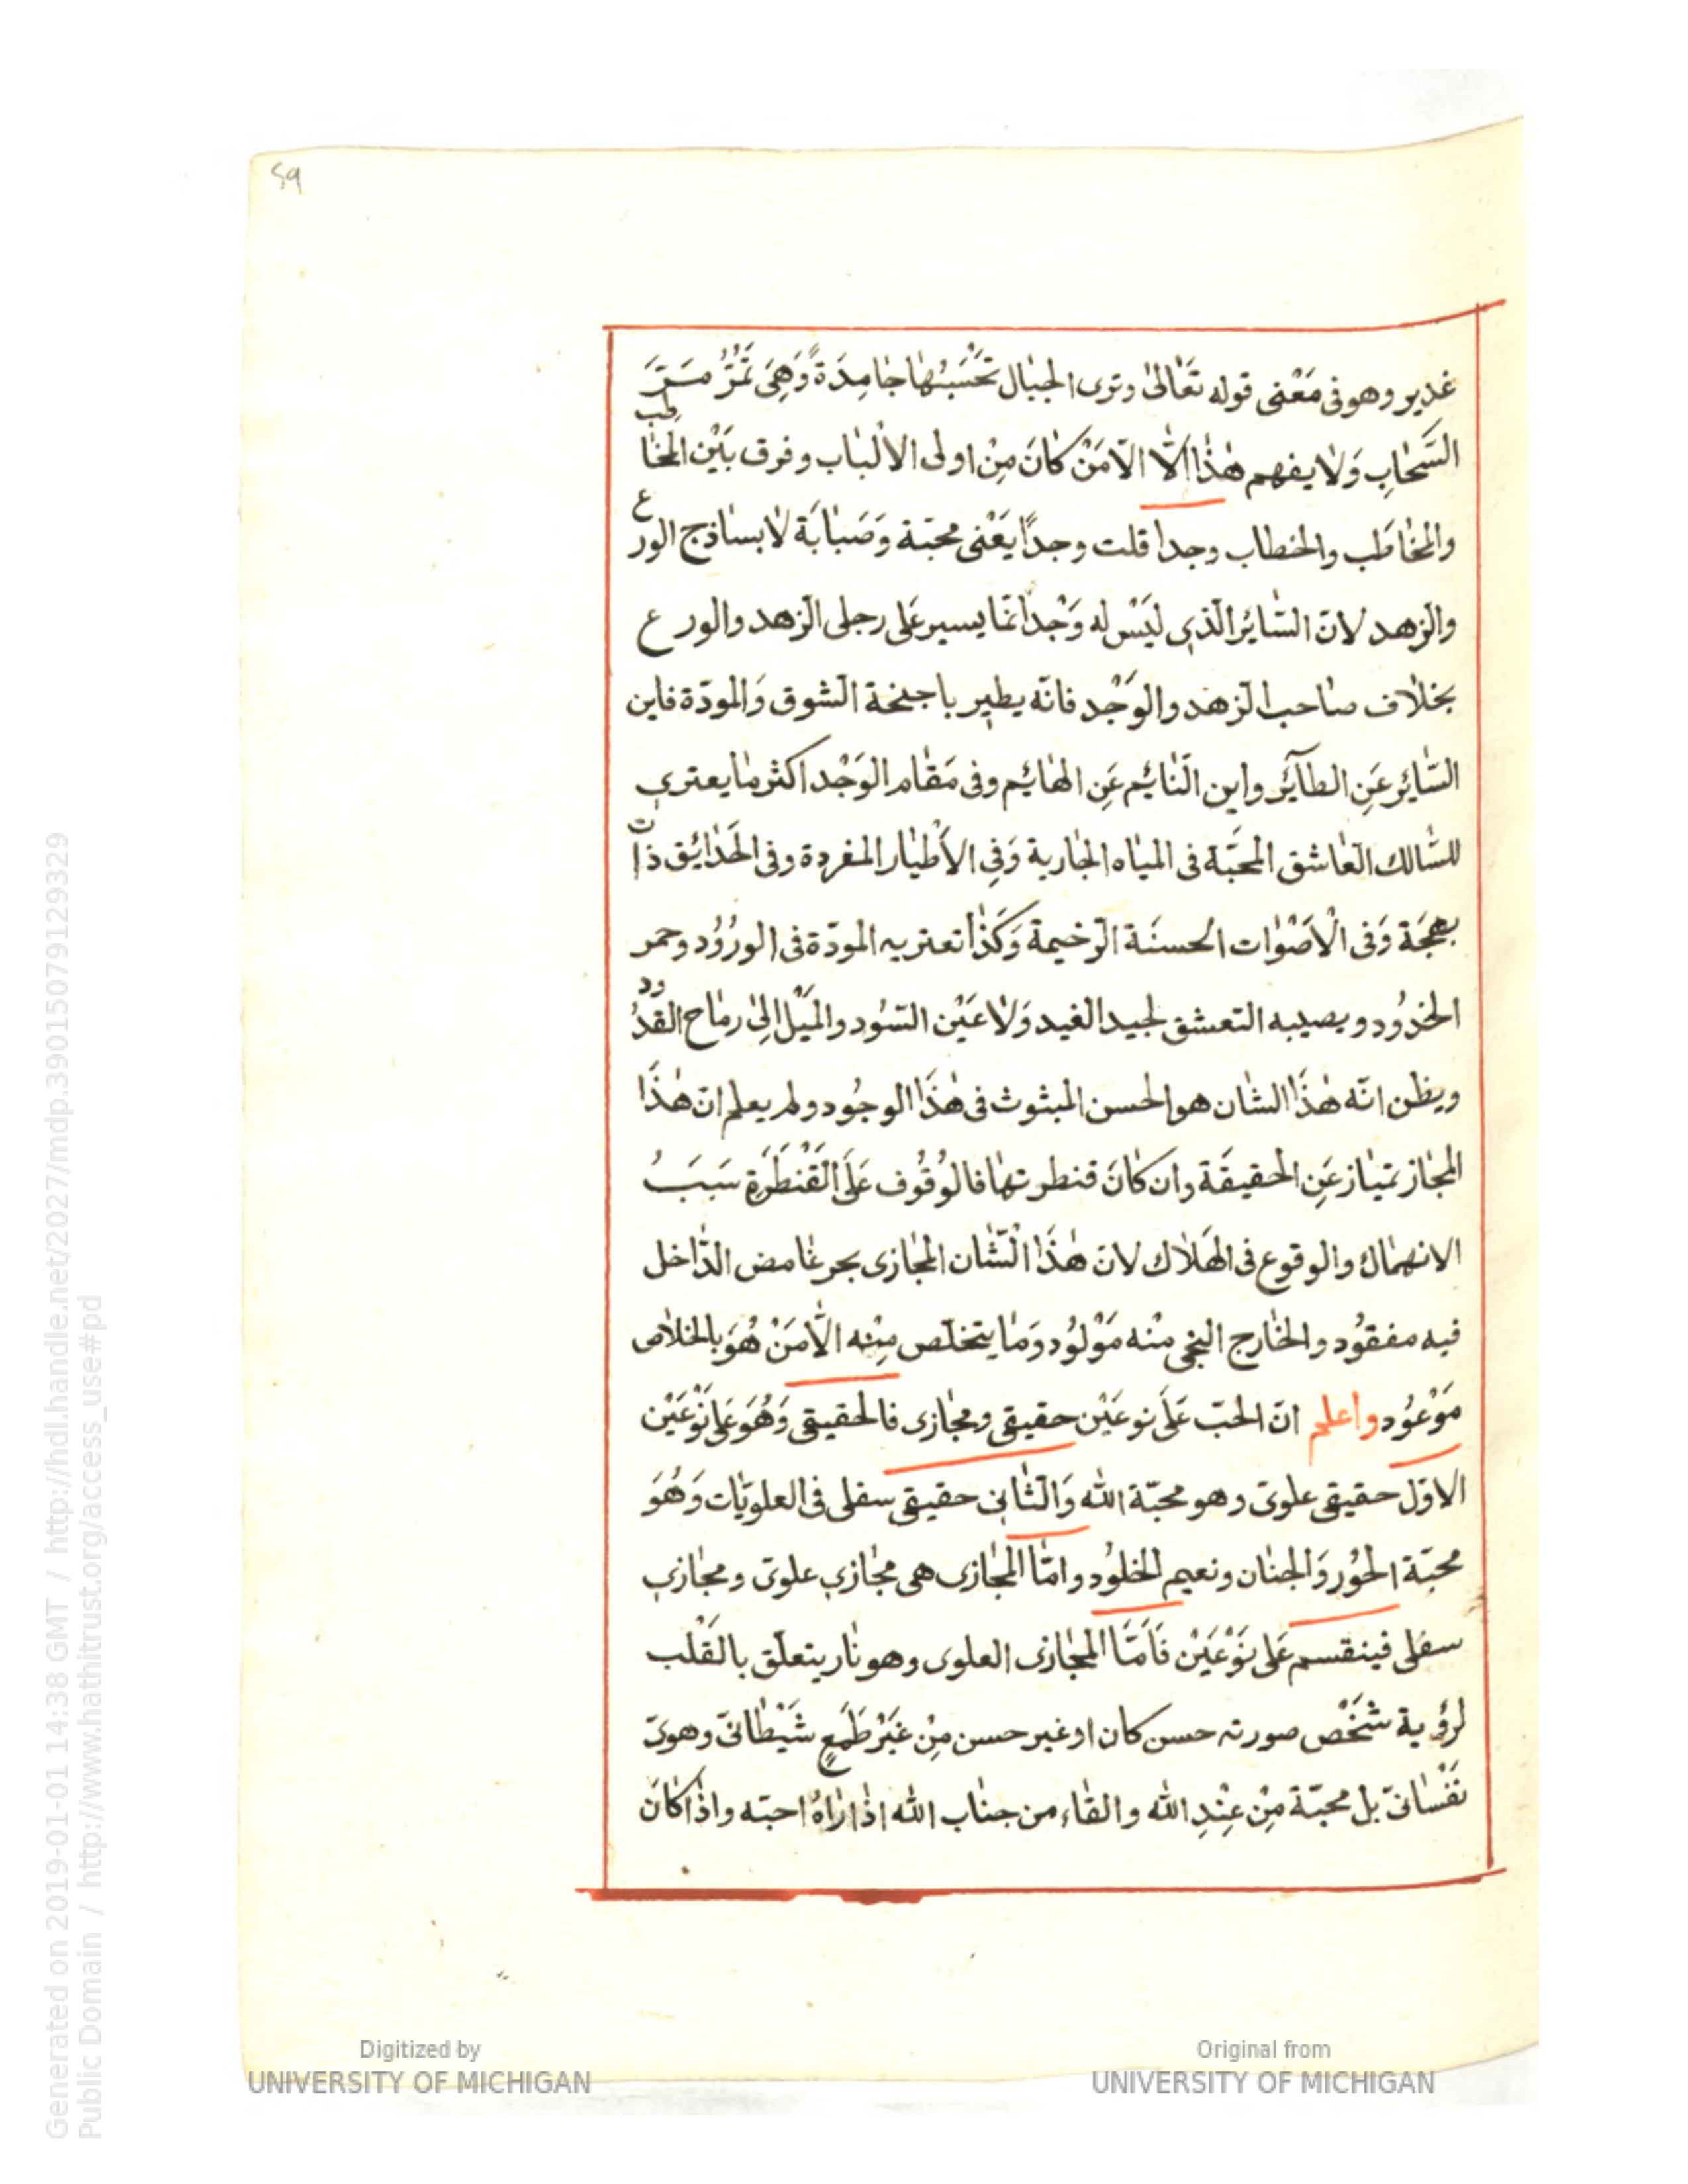 59
غدير وهو فى مَعْنى قوله تعَالىٰ وترى الجبَال تَحْسَبُهَا جَامِدَةً وَهِىَ تَمُرُّ مَرَّ
السَّحَابِ وَلا يفهم هٰذا الّا الّا مَنْ كانَ مِنْ اولى الالْبَاب وفرق بَيْن المخَاطِب
والمخَاطَب والخطاب وجدا قلت وجدًا يَعْنى محبّة وَصَبَابَة لا بسَاذج الورع
والزهد لانّ السَّائِر الّذى ليَسْ له وَجْد انمّا يسير عَلى رجلى الزهد والورع
بخلاف صَاحب الزهد والوَجْد فانّه يطير باجنحة الشوق وَالمودّة فاين
السَّائِر عَنِ الطائر واين النَّائِم عَنِ الهَائِم وفى مَقَام الوَجْد اكثر مَا يعترى
للسَّالك العَاشق المحبَّة فى الميَاه الجَارية وَفِى الاَطْيَار المغردة وفى الحَدَائِق ذات
بهجَة وَفى الْاَصْوَات الحسنَة الرّخيمة وَكَذا تعتريه المودّة فى الورُوُد وحمر
الخدُود ويصيبه التعشق لجيد الغيد وَلاعَيْن السّوُد والمَيْل اِلىٰ رمَاح القدُود
ويظن انّه هٰذَا الشان هو الحسن المبثوث فى هٰذَا الوجُود ولم يعلم انّ هٰذَا
المجَاز تميَاز عَنِ الحقيقَة وان كانَ قنطرتهَا فالوُقُوف عَلَى القَنْطَرَةِ سَبَبُ
الانهمَاك والوقوع فى الهَلاك لانّ هٰذَا الشَّان المجَازى بحر غَامض الدَّاخل
فيه مفقوُد والخَارج النجى منْه مَوْلوُد وَمَا يتخلّص مِنْه الّا مَنْ هُوَ بالخلاص
مَوْعوُد واعلم انّ الحبّ عَلَى نوعَيْن حقيقى ومجَازى فالحقيقى وَهُوَ عَلى نَوْعَيْن
الاوّل حقيقى علوىّ وهو محبّة اللّٰه وَالثَّانى حقيقى سفلى فى العلويّات وَهُوَ
محبّة الحُوُر وَالجنَان ونعيم الخلوُد وامّا المجَازى هى مجَازى علوىّ ومجَازى
سفلى فينقسم عَلى نَوْعَيْن فَاَمَّا المجَازى العلوى وهو نَار يتعلّق بالقَلب
لرؤية شخْص صورته حسن كان او غير حسن مِنْ غَيْر طَمَعٍ شَيْطَانىّ وهوىّ
نفْسَانىّ بل محبّة مِنْ عِنْدِ اللّٰه والقَاء من جنَاب اللّٰه اذَا رَاهُ احبّه واذَا كانَ
Digitized by
UNIVERSITY OF MICHIGAN
Original from
UNIVERSITY OF MICHIGAN
Generated on 2019-01-01 14:38 GMT / http://hdl.handle.net/2027/mdp.39015079129329
Public Domain / http://www.hathitrust.org/access_use#pd